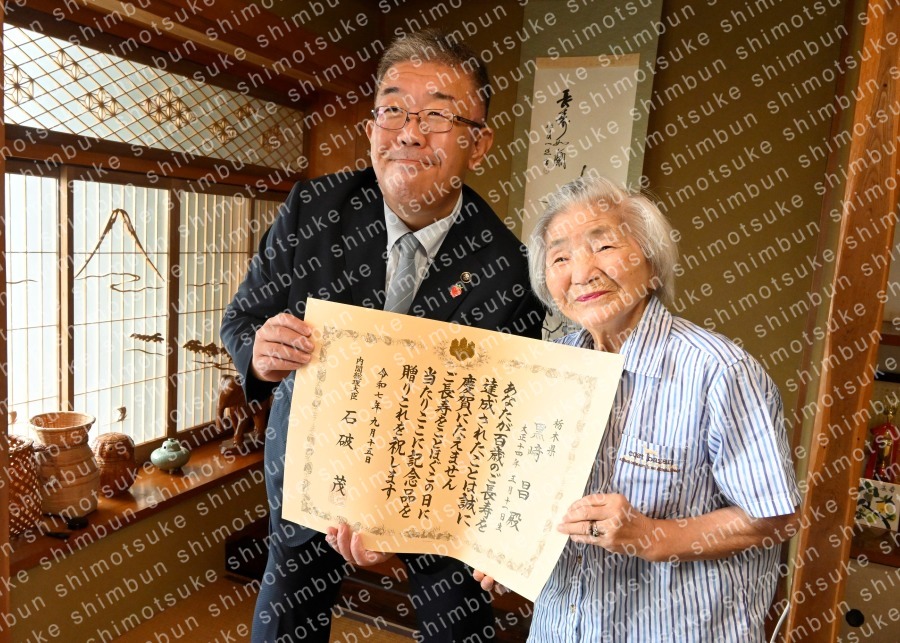 栃木県
黒崎 昌 殿
大正十四年 三月十一日生
あなたが百歳のご長寿を
達成されたことは誠に
慶賀にたえません
ご長寿をことほぐこの日に
当たりここに記念品を
贈りこれを祝します
令和七年九月十五日
内閣総理大臣 石破 茂
shimotsuke shimbun